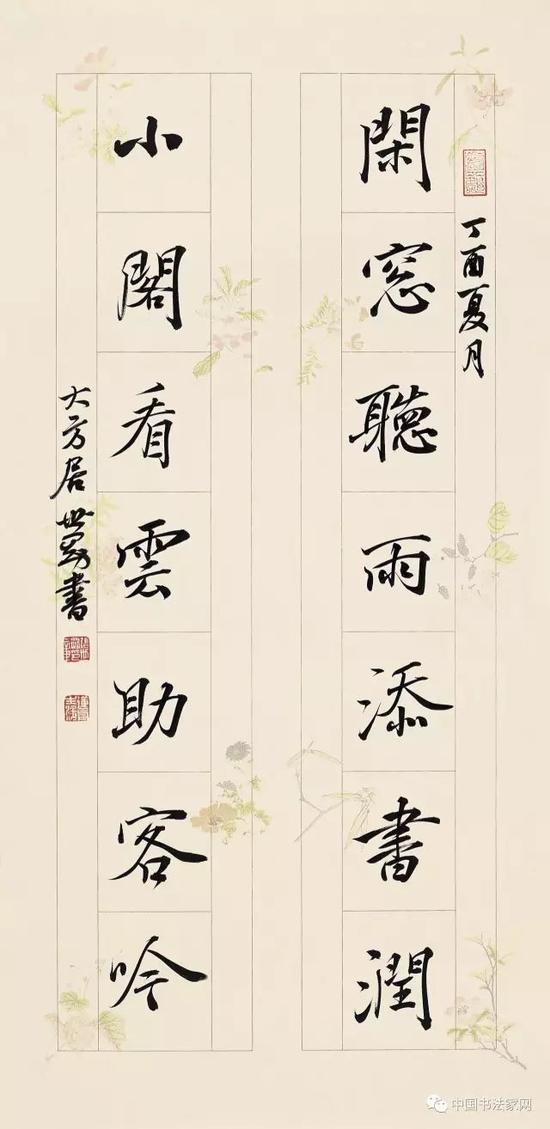 丁酉夏月
閑窓聽雨添書潤
小閣看雲助客吟
大方居世勁書
中国书法家网